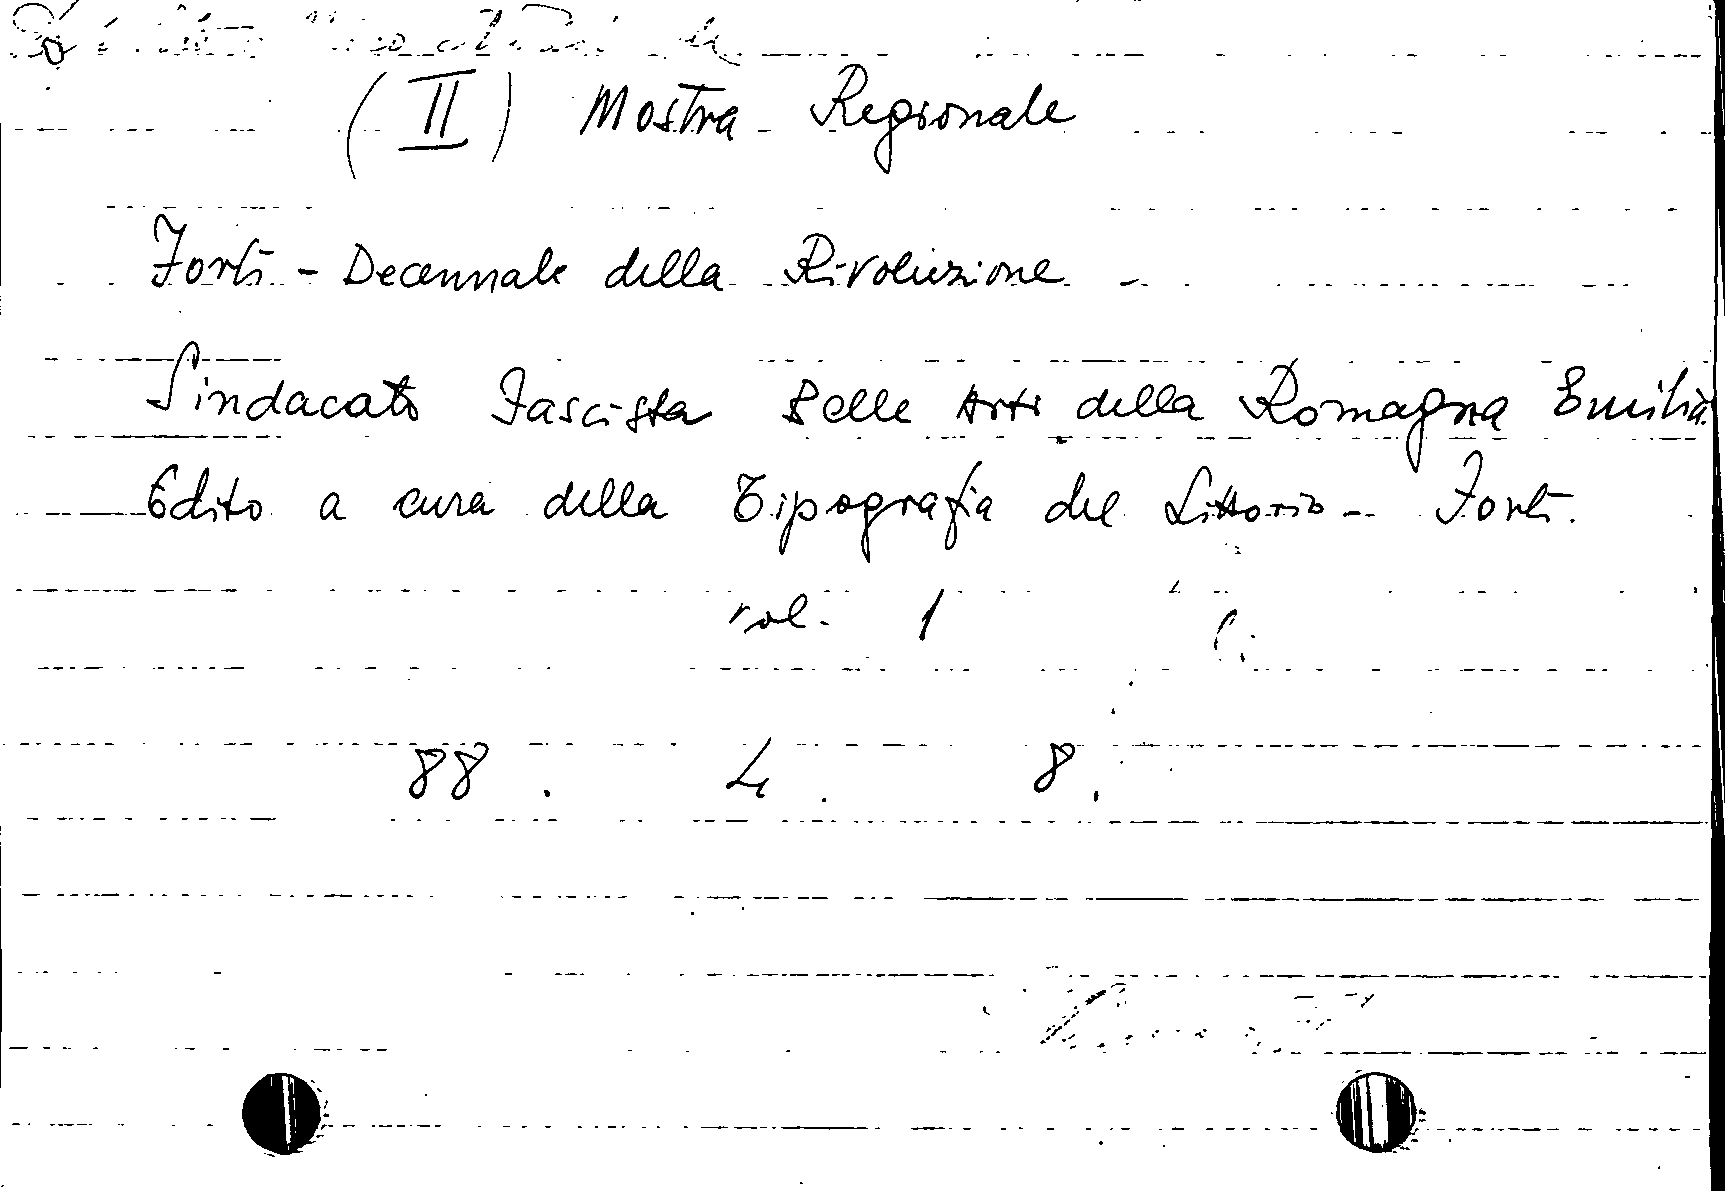 (II) Mostra Regionale
Forlì - Decennale della Rivoluzione -
Sindacato Fascista Belle Arti della Romagna Emilia.
Edito a cura della Tipografia del Littorio - Forlì.
vol. 1
88. 4. 8.